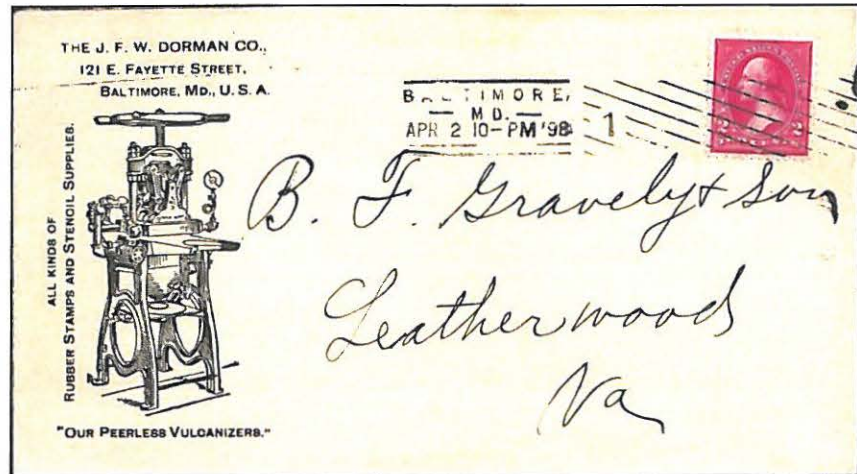 THE J. F. W. DORMAN CO.,
121 E. FAYETTE STREET,
BALTIMORE, MD., U. S. A.
ALL KINDS OF
RUBBER STAMPS AND STENCIL SUPPLIES.
"OUR PEERLESS VULCANIZERS."
BALTIMORE,
MD.
APR 2 10-PM '98
1
2 2
B. F. Gravely & Son
Leatherwood
Va